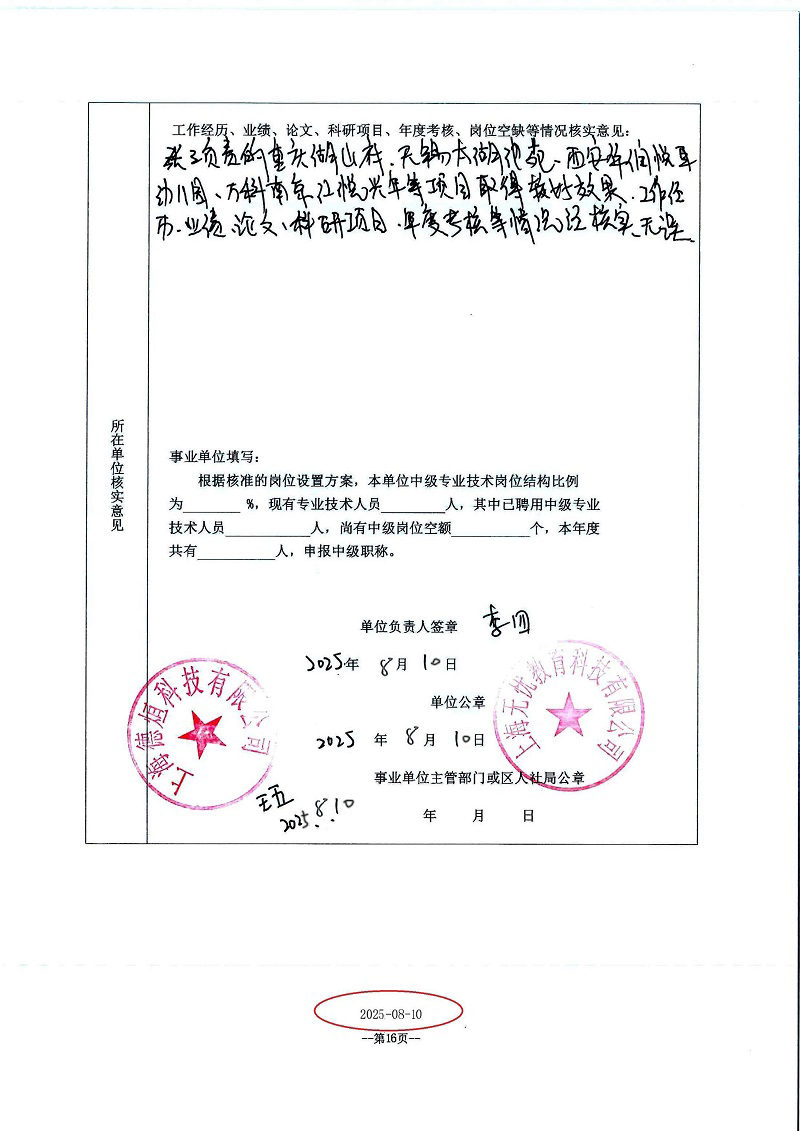 工作经历、业绩、论文、科研项目、年度考核、岗位空缺等情况核实意见:
张三负责的重庆湖山村、无锡大湖 苑、西安华润悦
幼儿园、万科南京江悦兴年等项目取得较好效果、工作经
历、业绩、论文、科研项目、年度考核等情况已核实、无误
所在单位核实意见
事业单位填写:
根据核准的岗位设置方案，本单位中级专业技术岗位结构比例
为________ %，现有专业技术人员_________人，其中已聘用中级专业
技术人员____________人，尚有中级岗位空额___________个，本年度
共有___________人，申报中级职称。
单位负责人签章 李四
2025年 8月10日
单位公章
2025 年 8月10日
事业单位主管部门或区人社局公章
年 月 日
上海德恒科技有限公司
上海无忧教育科技有限公司
王五
2025.8.10
2025-08-10
--第16页--